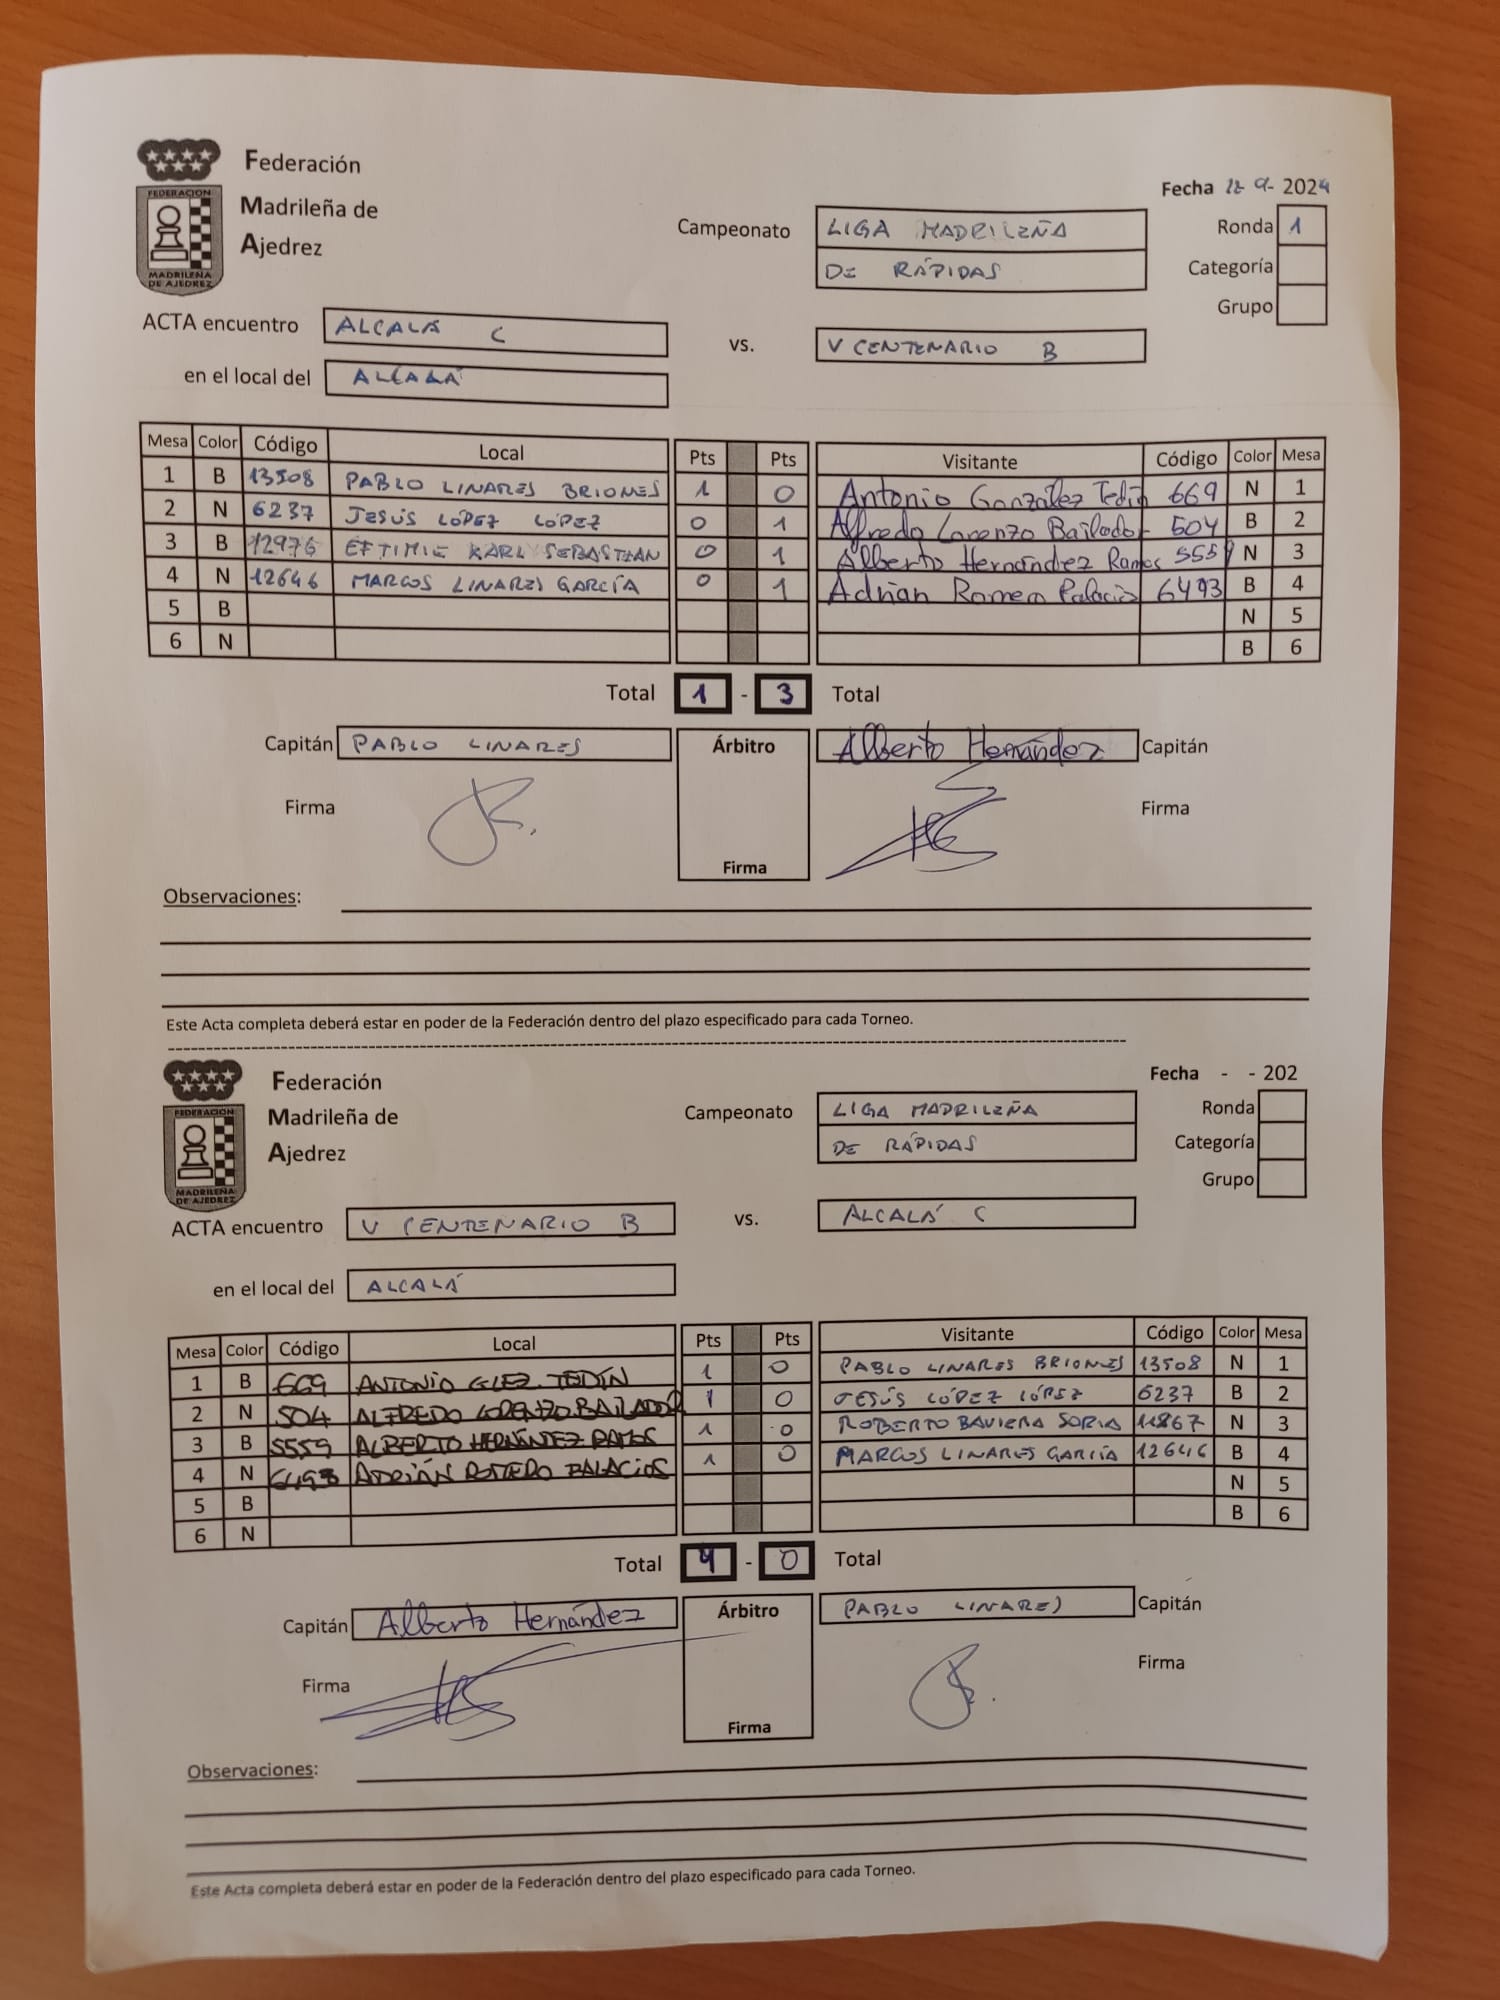 Federación
Madrileña de
Ajedrez
FEDERACION
MADRILEÑA
DE AJEDREZ
Fecha 9- 2024
Campeonato LIGA MADRILEÑA
DE RÁPIDAS
Ronda 1
Categoría
Grupo
ACTA encuentro ALCALÁ C vs. V CENTENARIO B
en el local del ALCALÁ
Mesa Color Código Local Pts Pts Visitante Código Color Mesa
1 B 13508 PABLO LINARES BRIONES 1 0 Antonio González Tedín 669 N 1
2 N 6237 JESÚS LÓPEZ LÓPEZ 0 1 Alfredo Lorenzo Bailador 504 B 2
3 B 12976 EFTIMIE KARL SEBASTIAN 0 1 Alberto Hernández Ramos 5559 N 3
4 N 12646 MARCOS LINARES GARCÍA 0 1 Adrián Romero Palacios 6493 B 4
5 B N 5
6 N B 6
Total 1 - 3 Total
Capitán PABLO LINARES Árbitro Alberto Hernández Capitán
Firma Firma
Firma
Observaciones:
Este Acta completa deberá estar en poder de la Federación dentro del plazo especificado para cada Torneo.
Federación
Madrileña de
Ajedrez
FEDERACION
MADRILEÑA
DE AJEDREZ
Fecha - - 202
Campeonato LIGA MADRILEÑA
DE RÁPIDAS
Ronda
Categoría
Grupo
ACTA encuentro V CENTENARIO B vs. ALCALÁ C
en el local del ALCALÁ
Mesa Color Código Local Pts Pts Visitante Código Color Mesa
1 B 669 ANTONIO GLEZ. TEDÍN 1 0 PABLO LINARES BRIONES 13508 N 1
2 N 504 ALFREDO LORENZO BAILADOR 1 0 JESÚS LÓPEZ LÓPEZ 6237 B 2
3 B 5559 ALBERTO HERNÁNDEZ RAMOS 1 0 ROBERTO BAVIERA SORIA 11867 N 3
4 N 6493 ADRIÁN ROMERO PALACIOS 1 0 MARCOS LINARES GARCÍA 12646 B 4
5 B N 5
6 N B 6
Total 4 - 0 Total
Capitán Alberto Hernández Árbitro PABLO LINARES Capitán
Firma Firma
Firma
Observaciones:
Este Acta completa deberá estar en poder de la Federación dentro del plazo especificado para cada Torneo.